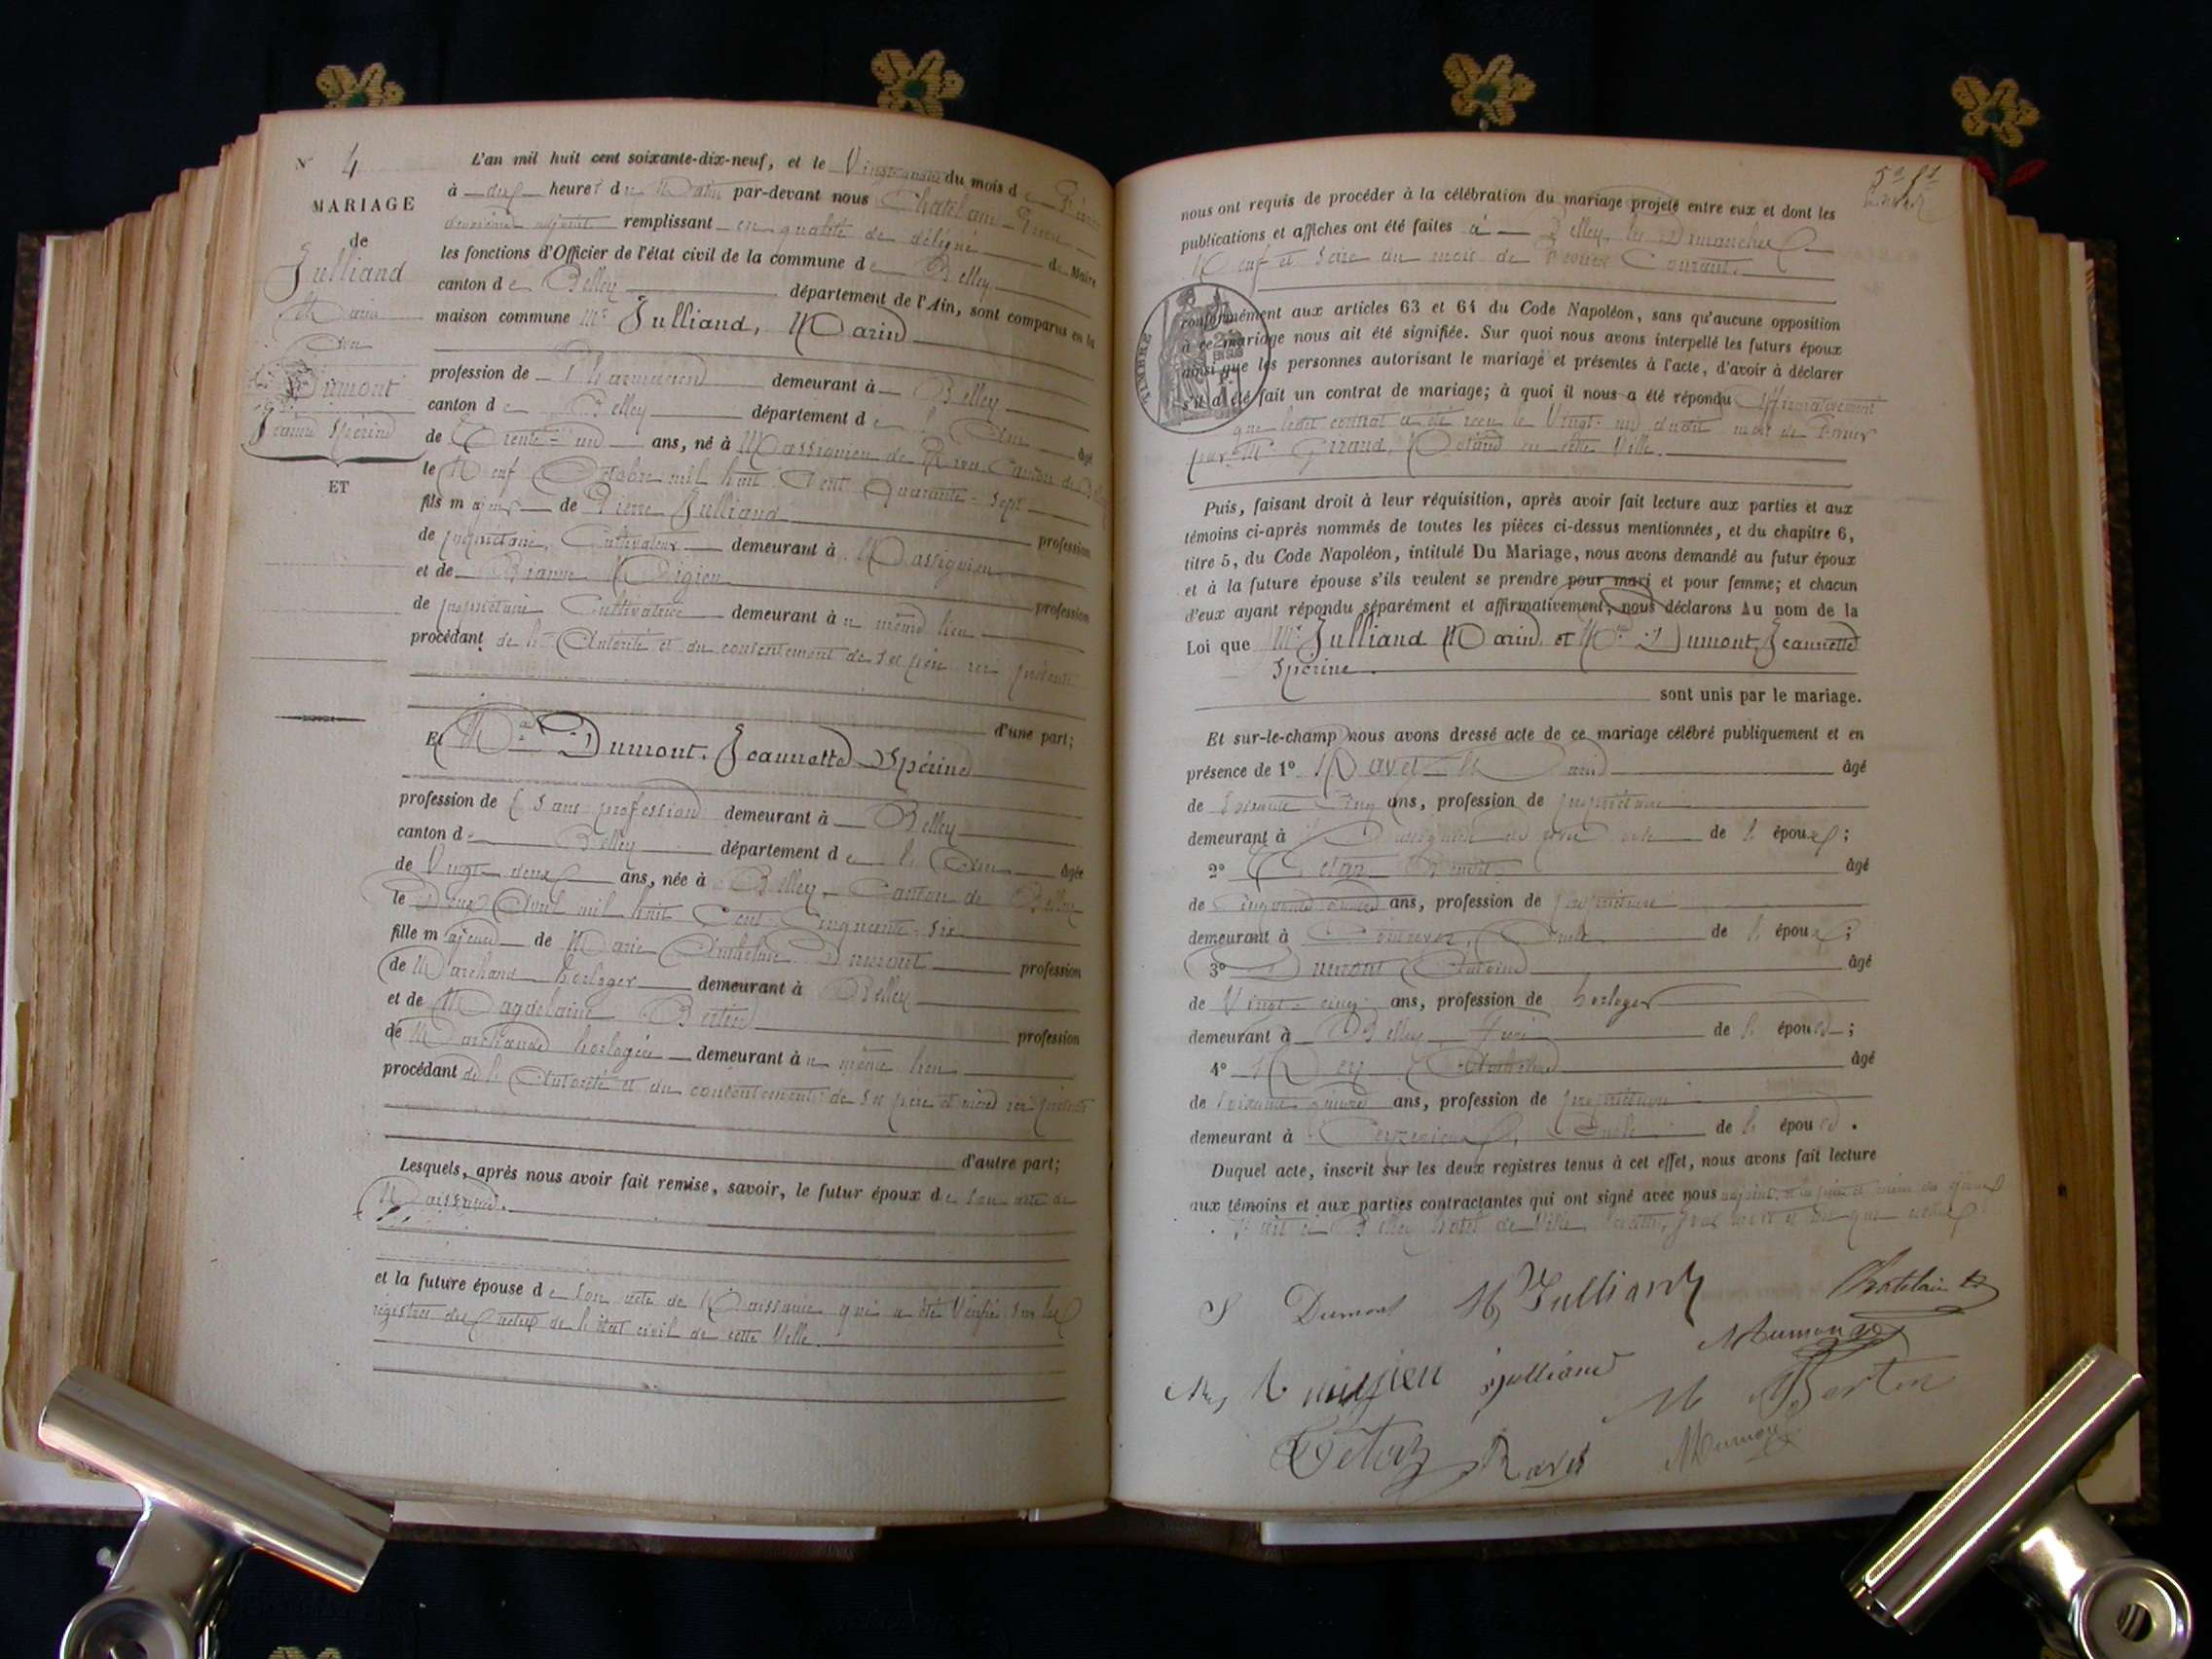 N° 4
MARIAGE
de
Julliand
Marin
Et
Dumont
Jeannette Spérine
ET
L'an mil huit cent soixante-dix-neuf, et le du mois de
à dix heures du Matin par-devant nous Chatelain
adjoint remplissant en qualité de délégué du Maire
les fonctions d'Officier de l'état civil de la commune de Belley
canton de Belley département de l'Ain, sont comparus en la
maison commune Mr Julliand, Marin
profession de Pharmacien demeurant à Belley
canton de Belley département de l'Ain âgé
de Trente-un ans, né à Massignieu de Rives Canton de Belley
le Neuf Octobre mil huit Cent Quarante-Sept
fils majeur de Pierre Julliand profession
de propriétaire, Cultivateur demeurant à Massignieu
et de profession
de propriétaire Cultivatrice demeurant au même lieu
procédant de l'Autorité et du consentement de ses père ici présents
d'une part;
Et Mlle Dumont, Jeannette Spérine
profession de Sans profession demeurant à Belley
canton de Belley département de l'Ain âgée
de Vingt-deux ans, née à Belley, Canton de Belley
le Avril mil huit Cent Cinquante-Six
fille majeure de Marie Anthelme Dumont profession
de Marchand horloger demeurant à Belley
et de Magdelaine Bertin profession
de Marchande horlogère demeurant au même lieu
procédant de l'Autorité et du consentement de ses père et mère ici présents
d'autre part;
Lesquels, après nous avoir fait remise, savoir, le futur époux de son acte de
Naissance.
et la future épouse de son acte de Naissance qui a été Vérifié sur les
registres des actes de l'état civil de cette Ville.
nous ont requis de procéder à la célébration du mariage projeté entre eux et dont les
publications et affiches ont été faites à Belley, les Dimanches
Neuf et Seize du mois de Février Courant.
TIMBRE
conformément aux articles 63 et 64 du Code Napoléon, sans qu'aucune opposition
à ce mariage nous ait été signifiée. Sur quoi nous avons interpellé les futurs époux
ainsi que les personnes autorisant le mariage et présentes à l'acte, d'avoir à déclarer
s'il a été fait un contrat de mariage; à quoi il nous a été répondu Affirmativement
que ledit contrat a été reçu le Vingt-un dudit mois de Février
par Me Girand, Notaire en cette Ville.
Puis, faisant droit à leur réquisition, après avoir fait lecture aux parties et aux
témoins ci-après nommés de toutes les pièces ci-dessus mentionnées, et du chapitre 6,
titre 5, du Code Napoléon, intitulé Du Mariage, nous avons demandé au futur époux
et à la future épouse s'ils veulent se prendre pour mari et pour femme; et chacun
d'eux ayant répondu séparément et affirmativement, nous déclarons Au nom de la
Loi que Mr Julliand Marin et Mlle Dumont, Jeannette
Spérine.
sont unis par le mariage.
Et sur-le-champ nous avons dressé acte de ce mariage célébré publiquement et en
présence de 1° Ravet âgé
de Soixante Cinq ans, profession de propriétaire
demeurant à Massignieu de Rives de l'époux;
2° Benoit âgé
de ans, profession de propriétaire
demeurant à Oncle de l'époux;
3° Dumont Antoine âgé
de Vingt-cinq ans, profession de horloger
demeurant à Belley, frère de l'épouse;
4° Rey Anthelme âgé
de Soixante ans, profession de propriétaire
demeurant à Ceyzerieux, Oncle de l'épouse.
Duquel acte, inscrit sur les deux registres tenus à cet effet, nous avons fait lecture
aux témoins et aux parties contractantes qui ont signé avec nous adjoint, et les père et mère
Fait à Belley hôtel de Ville
S Dumont M Julliand Chatelain
julliand
M Bertin
Ravet